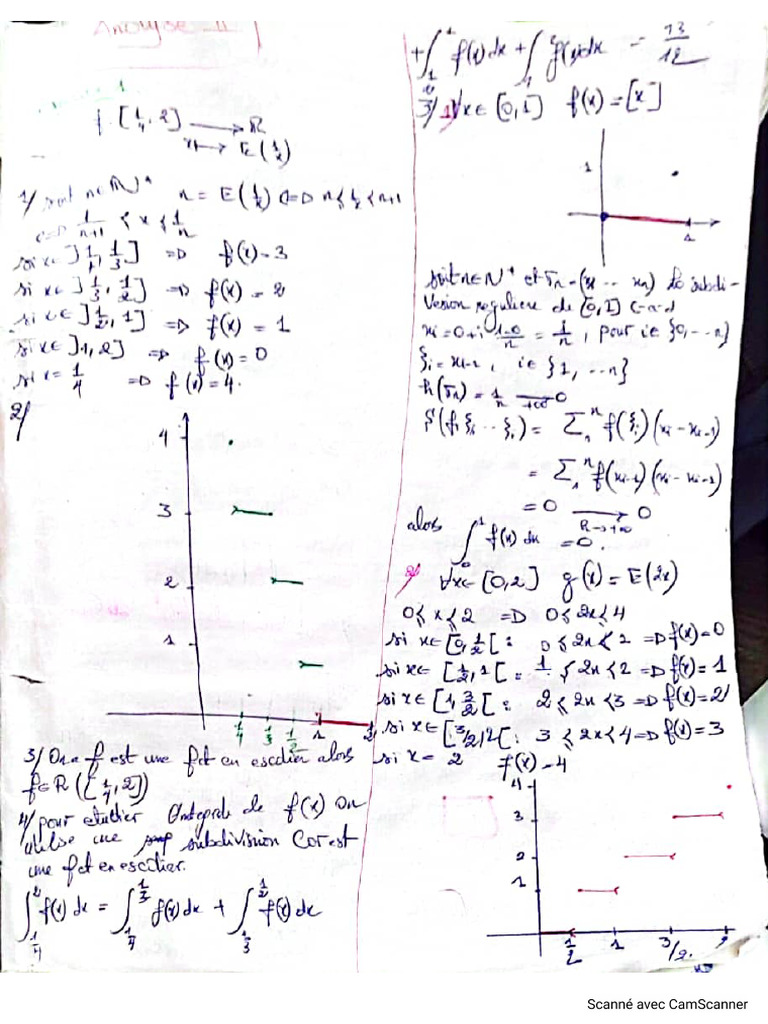 Analyse II
f : [1/4, 2] ⟶ R
x ⟼ E(1/x)
1/ soit n ∈ N* n = E(1/x) <=> n ≤ 1/x < n+1
<=> 1/(n+1) < x ≤ 1/n
si x ∈ ]1/4, 1/3] => f(x) = 3
si x ∈ ]1/3, 1/2] => f(x) = 2
si x ∈ ]1/2, 1] => f(x) = 1
si x ∈ ]1, 2] => f(x) = 0
si x = 1/4 => f(x) = 4.
2/
4
3
2
1
1/4 1/3 1/2 1 2
3/ On a f est une fct en escalier alors
f ∈ R([1/4, 2])
4/ pour etudier l'integrale de f(x) on
utilise une subdivision Car est
une fct en escalier.
∫_{1/4}^{2} f(x) dx = ∫_{1/4}^{1/3} f(x) dx + ∫_{1/3}^{1/2} f(x) dx
+ ∫_{1/2}^{1} f(x) dx + ∫_{1}^{2} f(x) dx = 13/12
3/ 1) ∀x ∈ [0,1] f(x) = [x]
1
1
soit n ∈ N* et σn = (x ... xn) la subdi-
vision reguliere de [0,1] c-a-d
xi = 0 + i (1-0)/n = i/n, pour i ∈ {0, ... n}
ξi = xi-1, i ∈ {1, ... n}
h(σn) = 1/n ⟶ 0
+∞
S(f, ξi ... ξi) = Σ_1^n f(ξi)(xi - xi-1)
= Σ_1^n f(xi-1)(xi - xi-1)
= 0 ⟶ 0
n→+∞
alors ∫_0^1 f(x) dx = 0.
2/ ∀x ∈ [0,2] g(x) = E(2x)
0 ≤ x ≤ 2 => 0 ≤ 2x ≤ 4
si x ∈ [0, 1/2[ : 0 ≤ 2x < 2 => f(x) = 0
si x ∈ [1/2, 1[ : 1 ≤ 2x < 2 => f(x) = 1
si x ∈ [1, 3/2[ : 2 ≤ 2x < 3 => f(x) = 2
si x ∈ [3/2, 2[ : 3 ≤ 2x < 4 => f(x) = 3
si x = 2 f(x) = 4
4
3
2
1
1/2 1 3/2 2
Scanné avec CamScanner